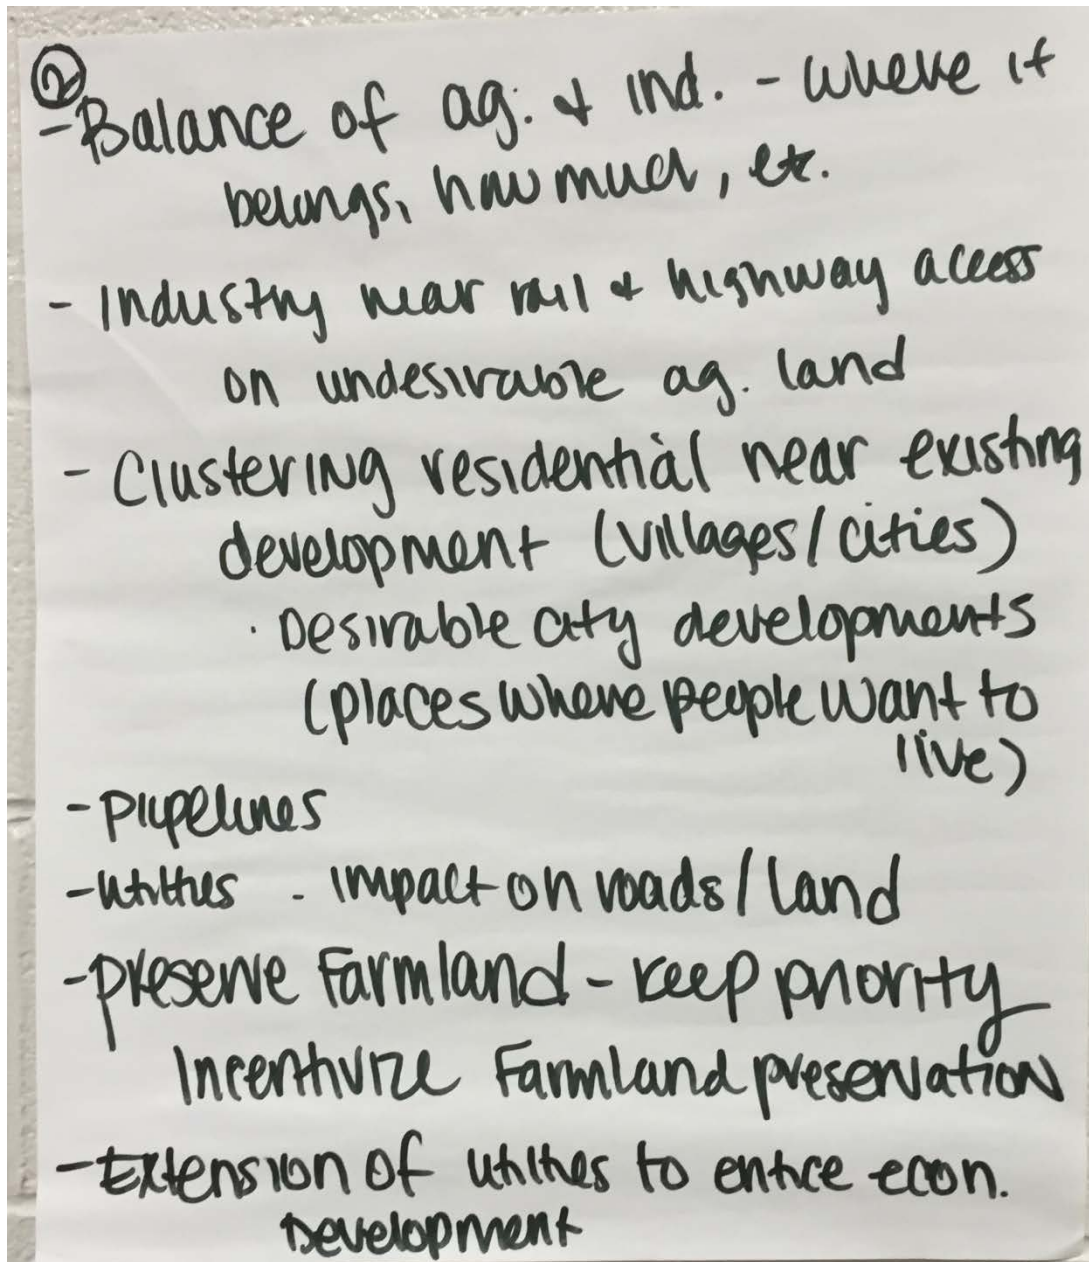 ②
-Balance of ag. & ind. - where it
belongs, how much, etc.
- Industry near rail & highway access
on undesirable ag. land
- Clustering residential near existing
development (villages/cities)
· Desirable city developments
(places where people want to
live)
- Pipelines
- utilities - impact on roads/land
- preserve Farmland - keep priority
Incentivize Farmland preservation
- Extension of utilities to entice econ.
Development